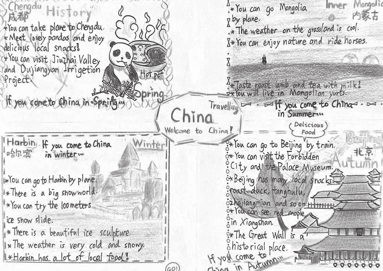 Chengdu
成都
History
You can take plane to Chengdu.
Meet lovely pandas and enjoy
delicious local snacks!
You can visit Jiuzhai Valley
and Dujiangyan Irrigation
Project.
Hot pot
Spring
If you come to China in Spring
You can go Mongolia
by plane.
Inner Mongolia
内蒙古
The weather on the grassland is cool.
You can enjoy nature and ride horses.
Taste roast lamb and tea with milk!
You will live in Mongolian yurts.
If you come to China
in Summer
Travelling
China
Welcome to China!
Delicious
Food
Harbin
哈尔滨
If you come to China
in winter
Winter
You can go to Harbin by plane.
There is a big snow world
You can try the 100 meters
ice snow slide.
There is a beautiful ice sculpture.
The weather is very cold and snowy.
Harbin has a lot of local food!
You can go to Beijing by train.
You can visit the Forbidden
City and the Palace Museum.
Beijing has many local snacks
roast duck, tanghulu,
zhajiangmian and so on
You can see red maple
in Xiangshan.
The Great Wall is a
historical place.
北京
Autumn
If you come to
China in Autumn
GO!